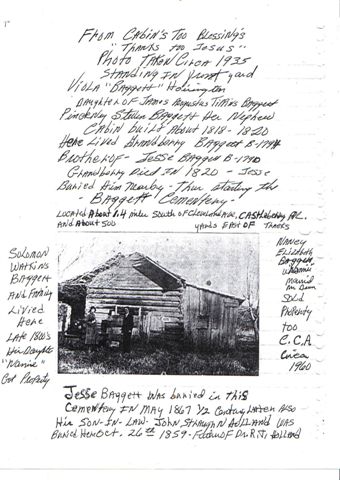 From Cabin's Too Blessing's
"Thanks too Jesus"
Photo Taken Circa 1935
Standing in front yard
Viola "Baggett" Herington
Daughter of James Augustus Titus Baggett
Pinckney Baggett Her Nephew
Cabin built About 1818-1820
Here Lived Granberry Baggett B-1794
Brother of - Jesse Baggett B-1790
Granberry Died In 1820 - Jesse
Buried Him Nearby - Thus starting the
- Baggett Cemetery -
Located About 1.4 miles South of Cleveland Ave, Castleberry AL.
And About 500 yards East of Tracks
Solomon
Watkins
Baggett
And Family
Livied
Here
Late 1800's
His Daughter
"Nannie"
Got Property
Nancy
Elizabeth
Baggett
Nannie
married
Mr.
Sold
Property
too
C.C.A
Circa
1960
Jesse Baggett Was buried in this
Cemetery In May 1867 1/2 Century Later Also
His Son-In-Law - John Straughn Holland WAS
Buried Here Oct. 26th 1859 - Father of Dr. R.J. Holland